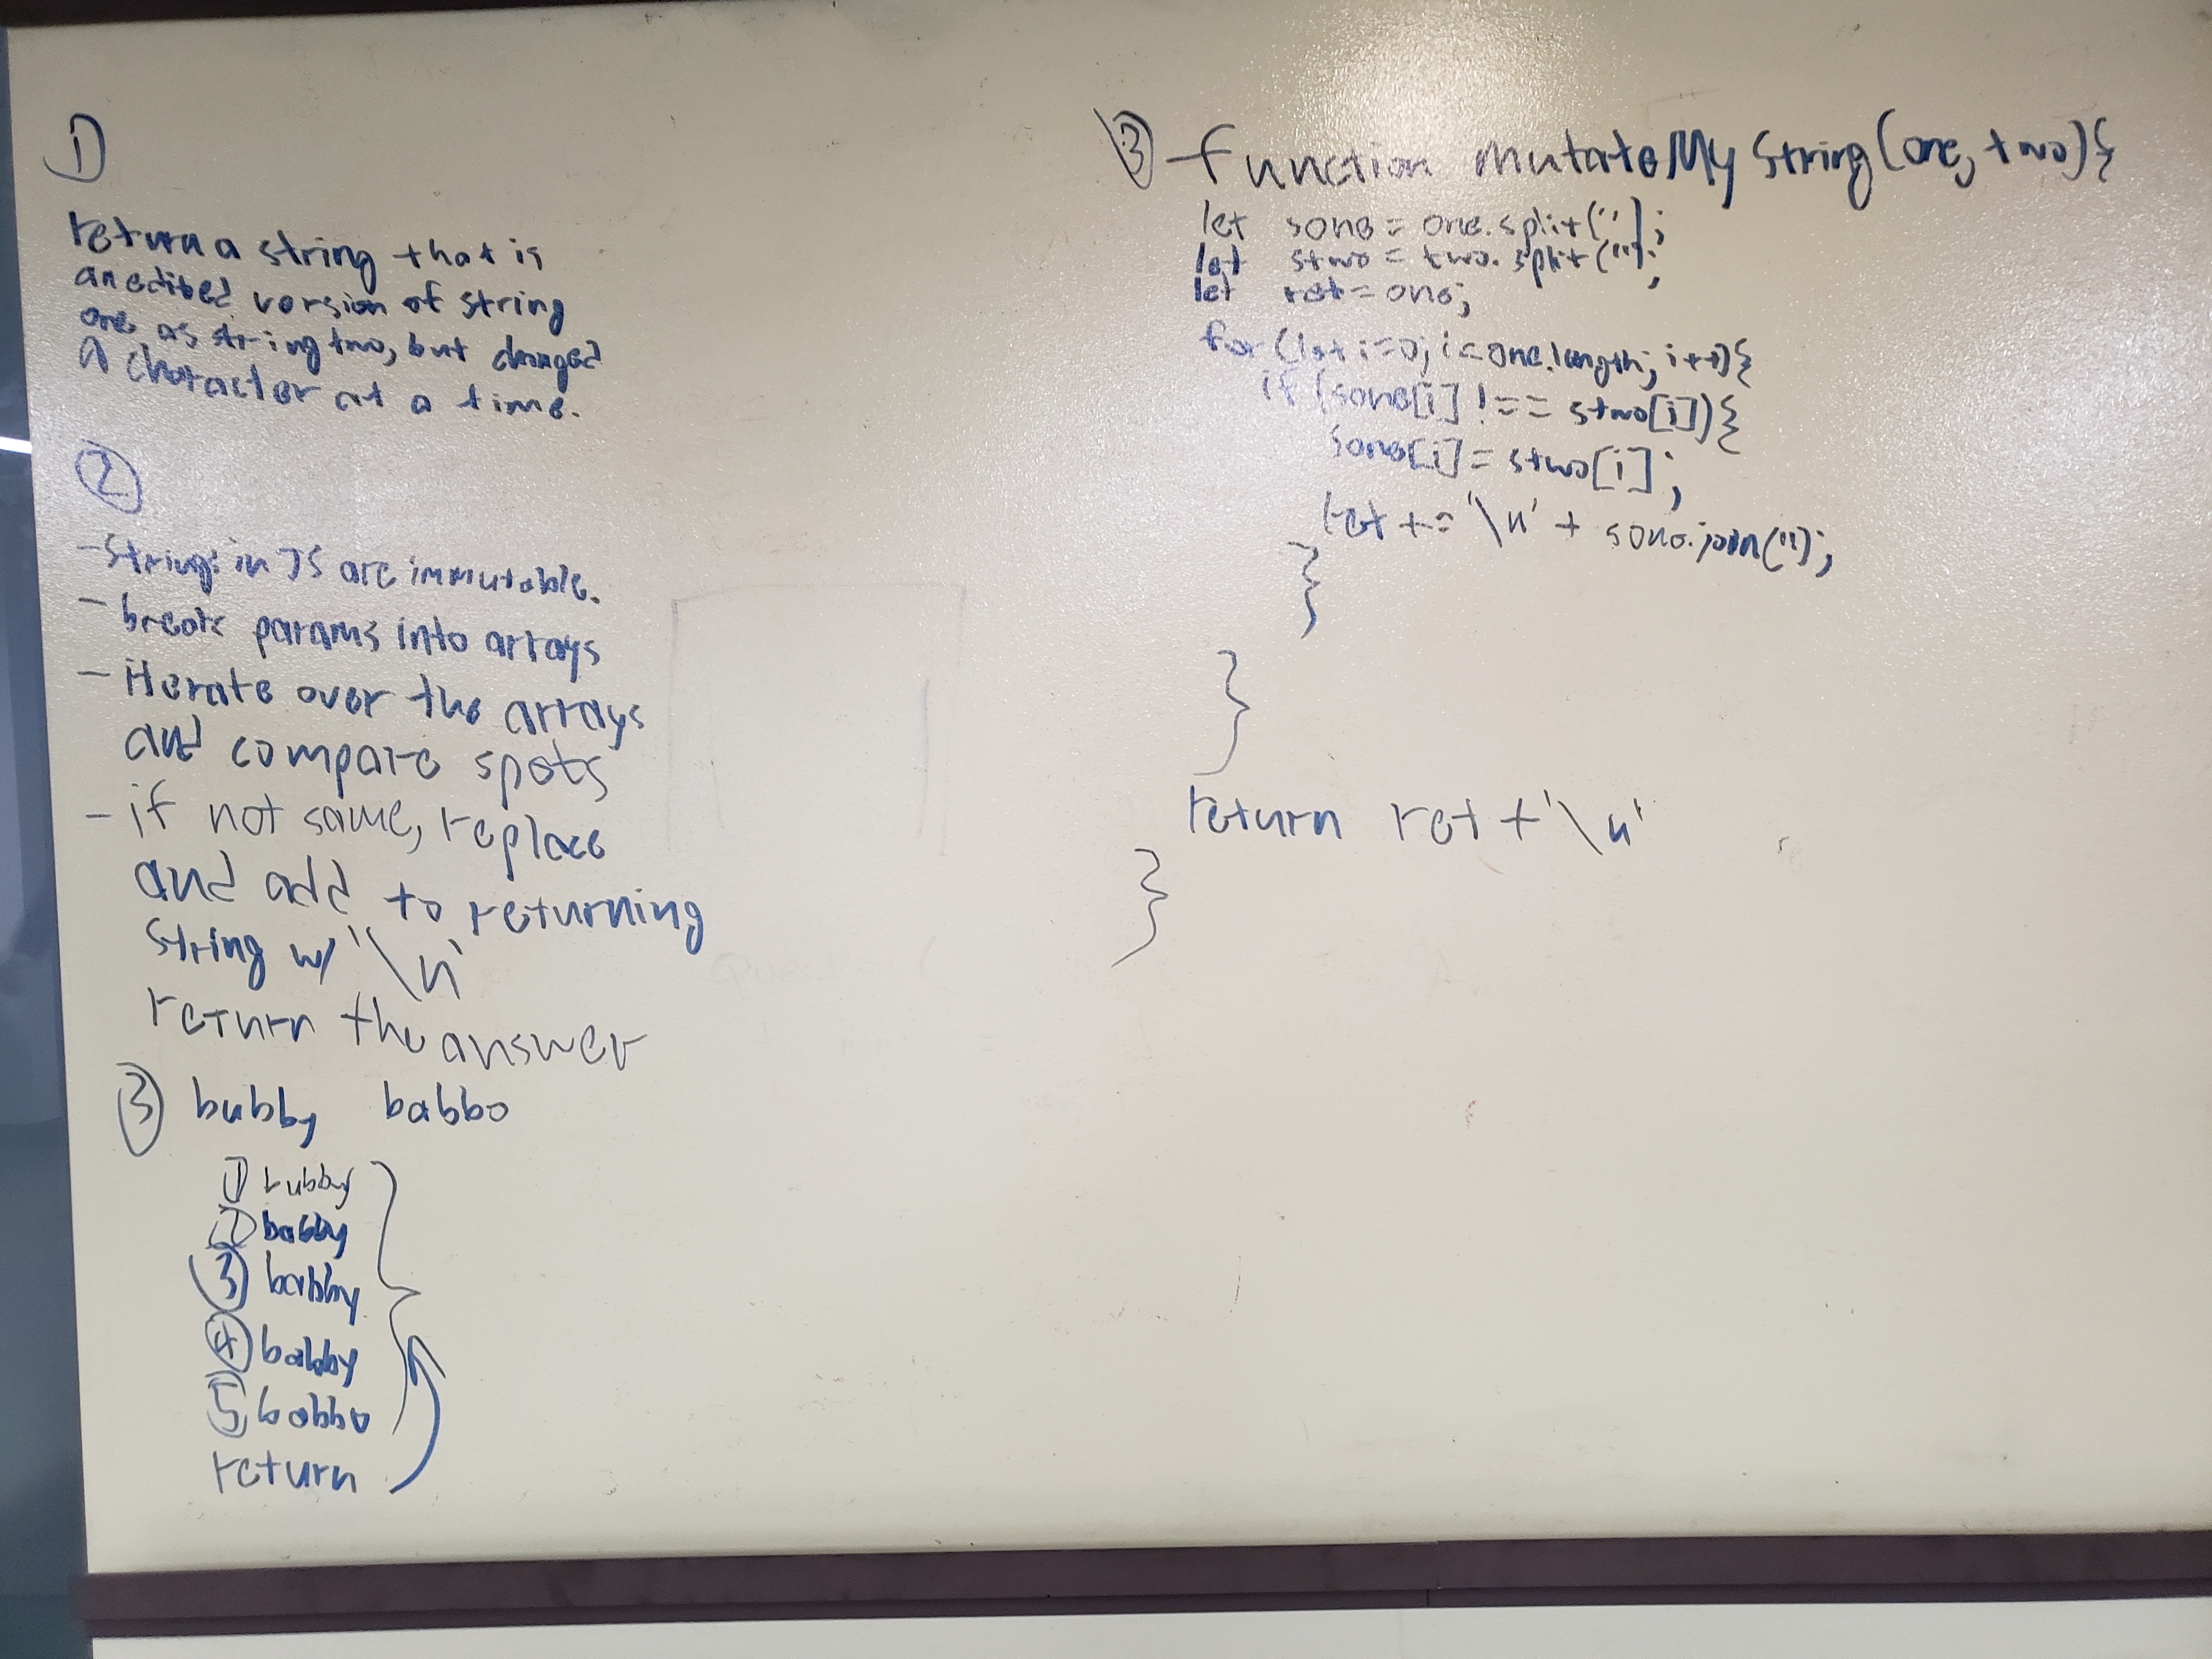 1)
return a string that is
an edited version of string
one as string two, but changed
a character at a time.
2
- Strings in JS are immutable.
- break params into arrays
- iterate over the arrays
and compare spots
- if not same, replace
and add to returning
string w/ '\n'
return the answer
3 bubby babbo
1 bubby
2 babby
3 babby
4 babby
5 babbo
return
3 function mutateMyString(one, two){
let sone = one.split('');
let stwo = two.split('');
let ret = one;
for(let i=0; i<one.length; i++){
if (sone[i] !== stwo[i]){
sone[i] = stwo[i];
ret += '\n' + sone.join('');
}
}
return ret + '\n'
}